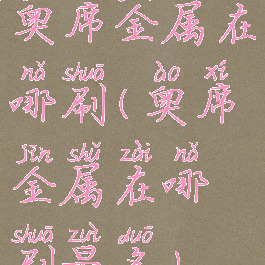 奥席金属在
nǎ shuā ào xí
哪刷(奥席
jīn shǔ zài nǎ
金属在哪
shuā zuì duō
刷最多)